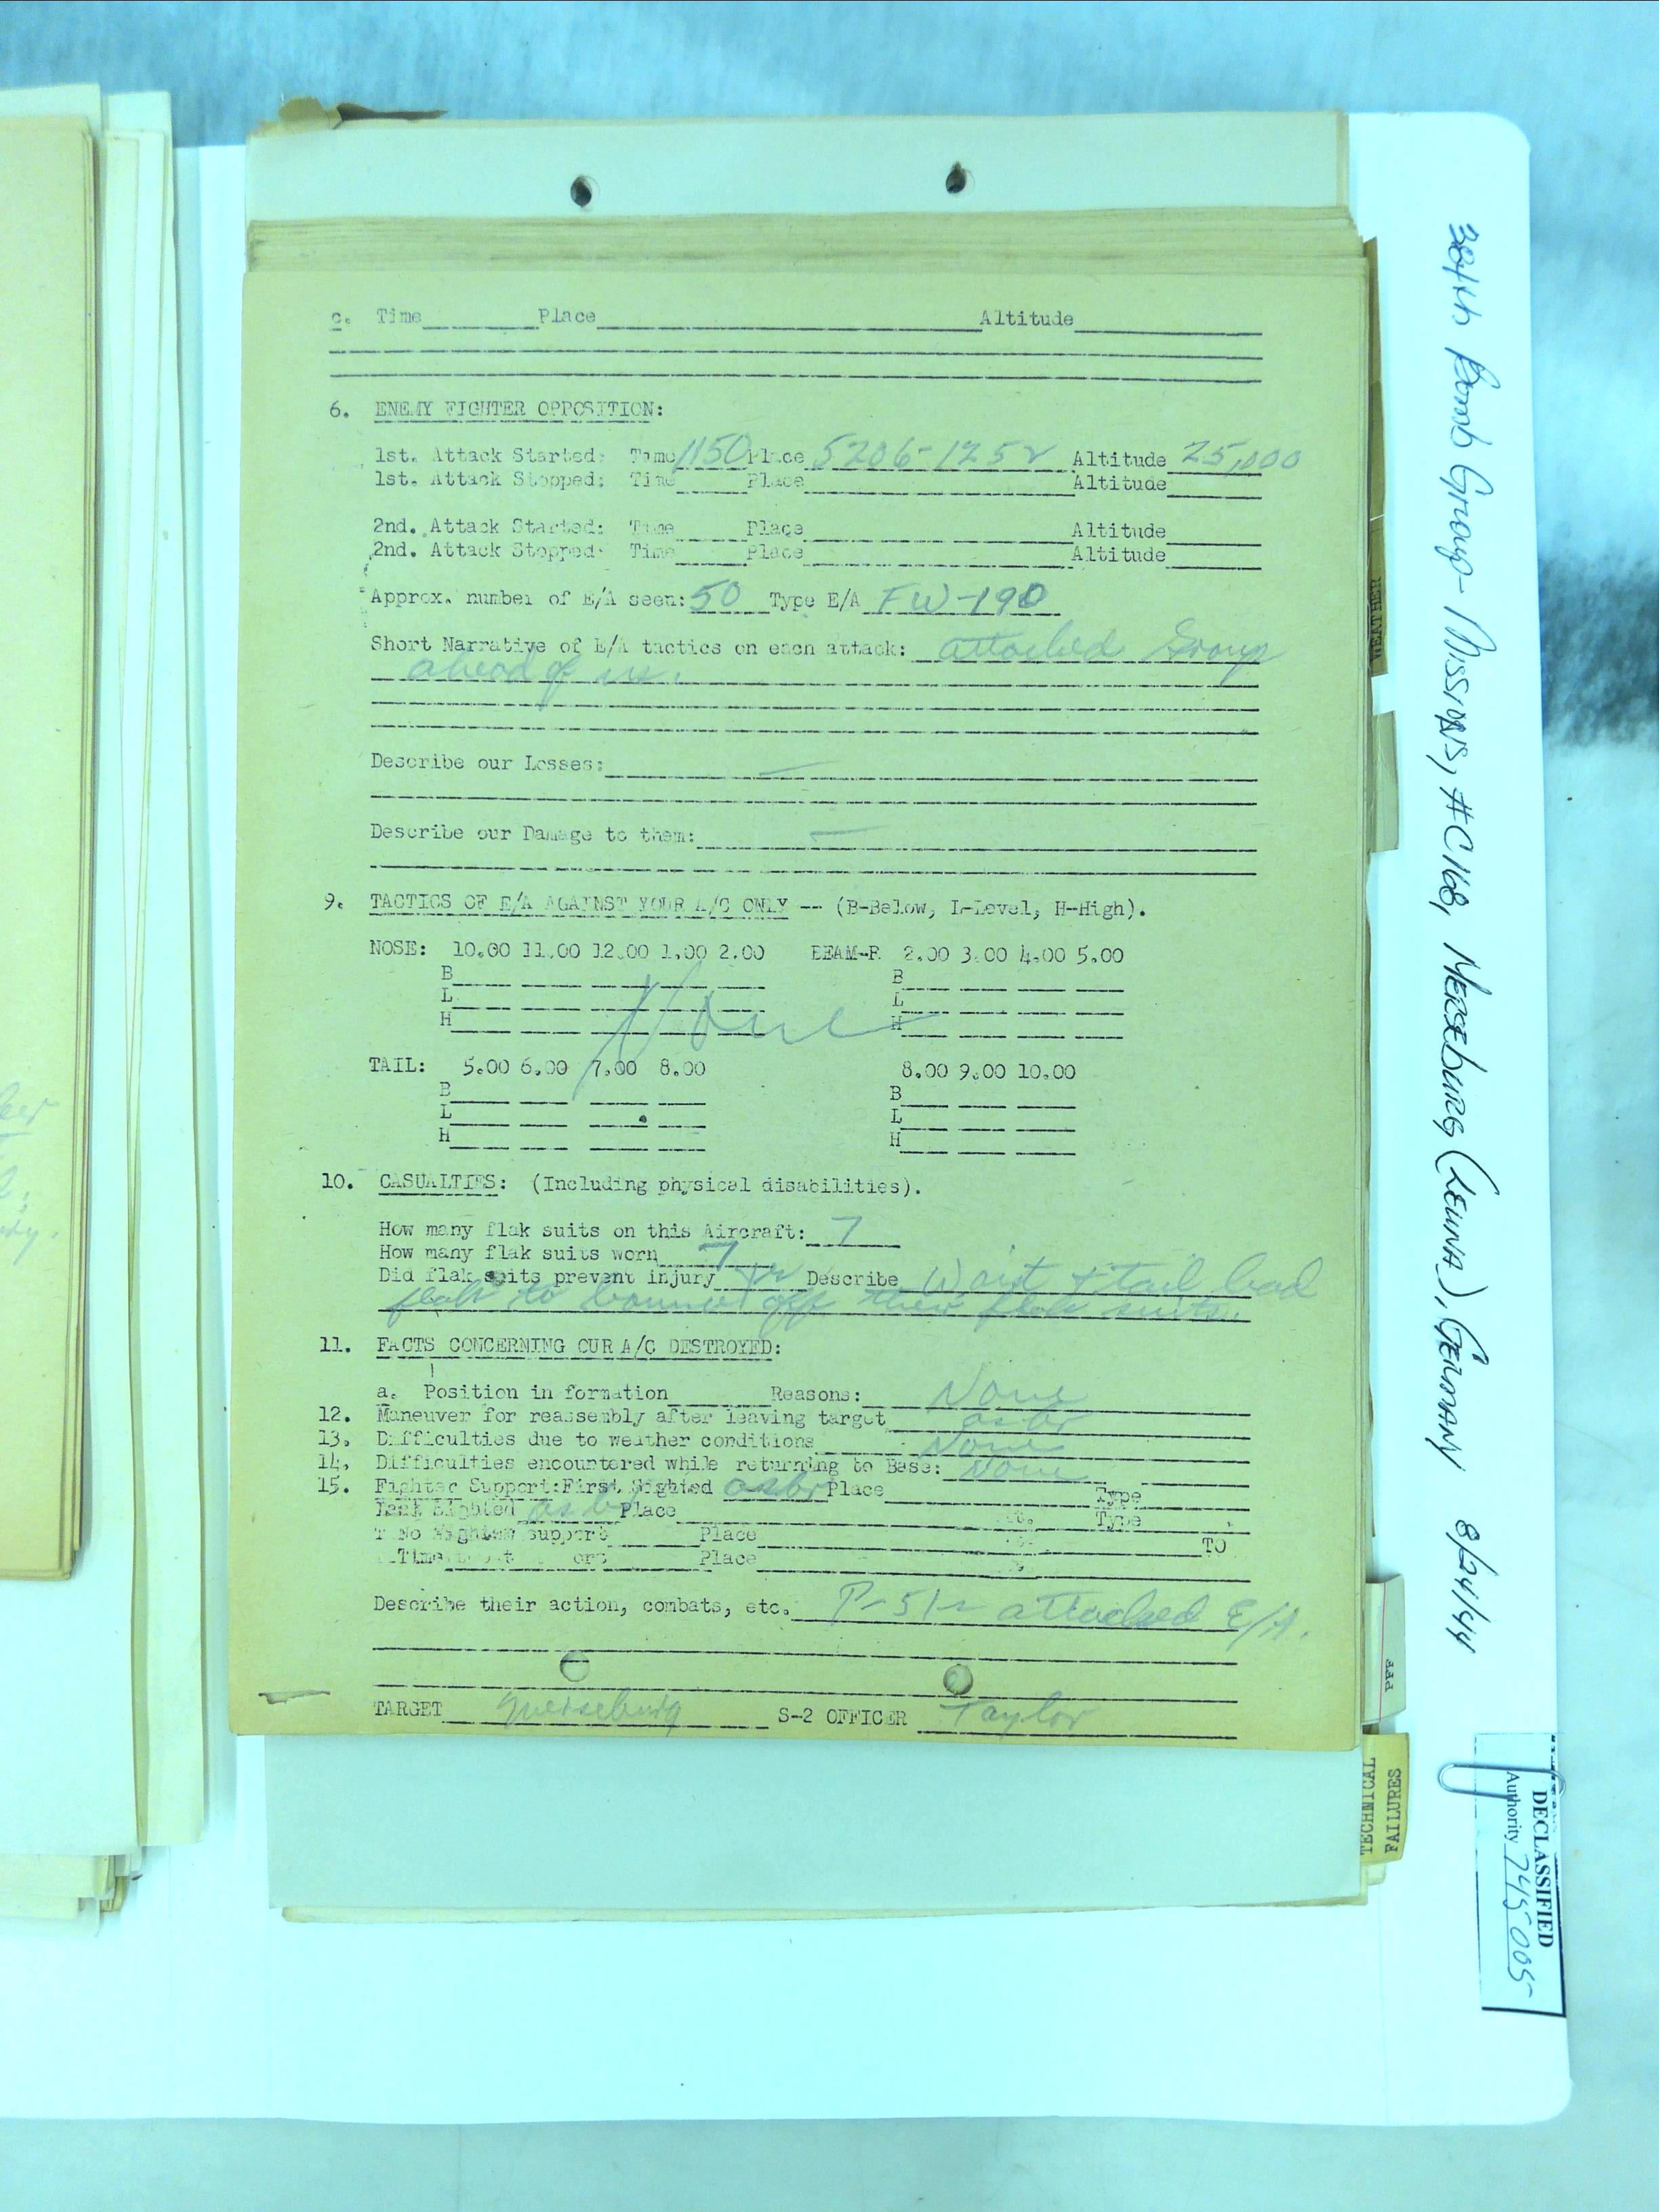 c. Time Place Altitude
6. ENEMY FIGHTER OPPOSITION:
1st. Attack Started: Time 1150 Place 5206-1252 Altitude 25,000
1st. Attack Stopped: Time Place Altitude
2nd. Attack Started: Time Place Altitude
2nd. Attack Stopped: Time Place Altitude
Approx. number of E/A seen: 50 Type E/A FW-190
Short Narrative of E/A tactics on each attack: attacked Group
ahead of us.
Describe our Losses: —
Describe our Damage to them: —
9. TACTICS OF E/A AGAINST YOUR A/C ONLY -- (B-Below, L-Level, H-High).
NOSE: 10.00 11.00 12.00 1.00 2.00 BEAM-R 2.00 3.00 4.00 5.00
B B
L L
H None H
TAIL: 5.00 6.00 7.00 8.00 8.00 9.00 10.00
B B
L L
H H
10. CASUALTIES: (Including physical disabilities).
How many flak suits on this Aircraft: 7
How many flak suits worn 7
Did flak suits prevent injury Describe Waist + tail had
flak to bounce off their flak suits.
11. FACTS CONCERNING OUR A/C DESTROYED:
a. Position in formation Reasons: None
12. Maneuver for reassembly after leaving target as br
13. Difficulties due to weather conditions None
14. Difficulties encountered while returning to Base: None
15. Fighter Support: First Sighted as br Place Type
Last Sighted as br Place Type
No Fighter support Place TO
Time Place
Describe their action, combats, etc. P-51s attacked E/A.
TARGET Merseburg S-2 OFFICER Taylor
384th Bomb Group - Missions, #C168, Merseburg (Leuna), Germany 8/24/44
WEATHER
PFF
TECHNICAL
FAILURES
DECLASSIFIED
Authority 745005